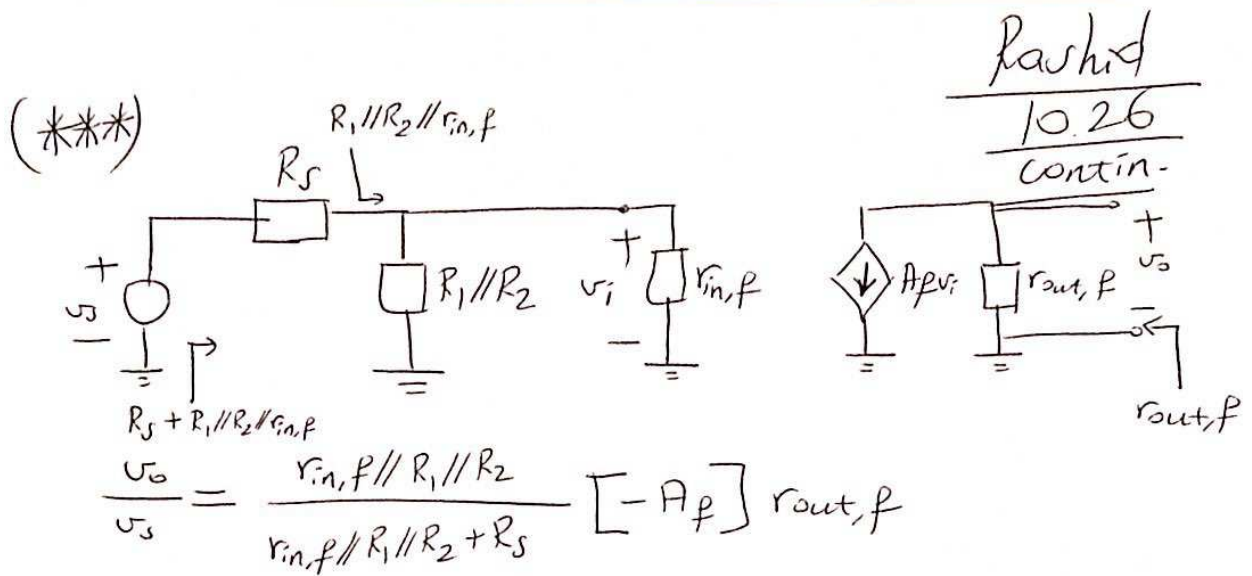 Rashid
10.26
contin.
(***)
R₁//R₂//rin,f
Rs
+
vs
−
R₁//R₂
+
vi
−
rin,f
Afvi
rout,f
+
vo
−
rout,f
Rs + R₁//R₂//rin,f
vo/vs = rin,f//R₁//R₂ / rin,f//R₁//R₂ + Rs [-Af] rout,f